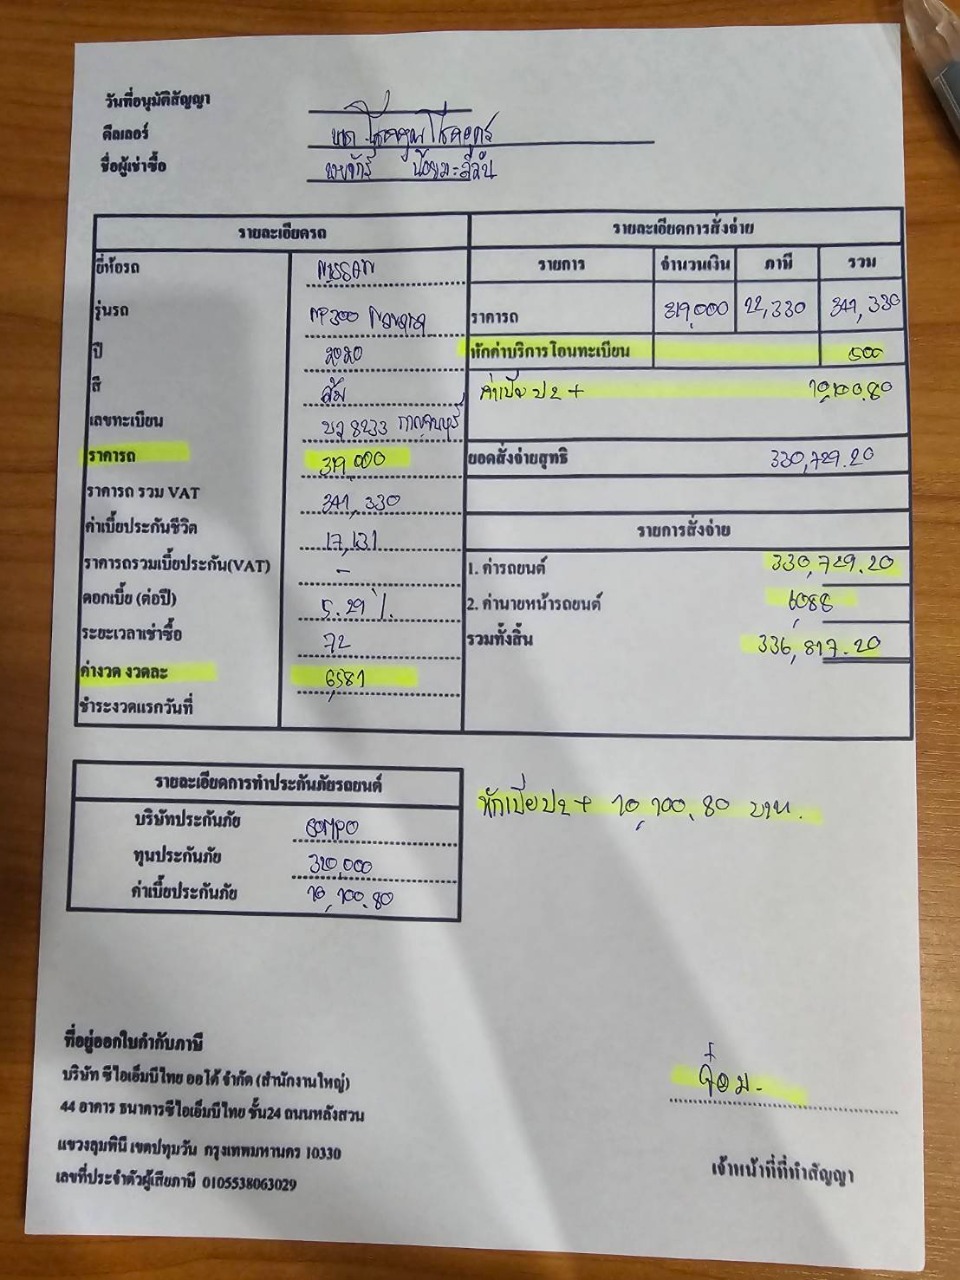 วันที่อนุมัติสัญญา
ดีลเลอร์ หจก.โชคคูณโชคอุดร
ชื่อผู้เช่าซื้อ
รายละเอียดรถ
ยี่ห้อรถ NISSAN
รุ่นรถ NP300 Navara
ปี 2020
สี ส้ม
เลขทะเบียน 8233 กาญจนบุรี
ราคารถ 319,000
ราคารถ รวม VAT 341,330
ค่าเบี้ยประกันชีวิต 17,131
ราคารถรวมเบี้ยประกัน(VAT) -
ดอกเบี้ย (ต่อปี) 5.29 %
ระยะเวลาเช่าซื้อ 72
ค่างวด งวดละ 6,581
ชำระงวดแรกวันที่
รายละเอียดการสั่งจ่าย
รายการ จำนวนเงิน ภาษี รวม
ราคารถ 319,000 22,330 341,330
หักค่าบริการโอนทะเบียน 500
ค่าเบี้ย ป2+ 10,100.80
ยอดสั่งจ่ายสุทธิ 330,729.20
รายการสั่งจ่าย
1. ค่ารถยนต์ 330,729.20
2. ค่านายหน้ารถยนต์ 6,088
รวมทั้งสิ้น 336,817.20
รายละเอียดการทำประกันภัยรถยนต์
บริษัทประกันภัย SOMPO
ทุนประกันภัย 320,000
ค่าเบี้ยประกันภัย 10,100.80
หักเบี้ยป2+ 10,100.80 บาท.
ที่อยู่ออกใบกำกับภาษี
บริษัท ซีไอเอ็มบีไทย ออโต้ จำกัด (สำนักงานใหญ่)
44 อาคาร ธนาคารซีไอเอ็มบีไทย ชั้น24 ถนนหลังสวน
แขวงลุมพินี เขตปทุมวัน กรุงเทพมหานคร 10330
เลขที่ประจำตัวผู้เสียภาษี 0105538063029
เจ้าหน้าที่ที่ทำสัญญา